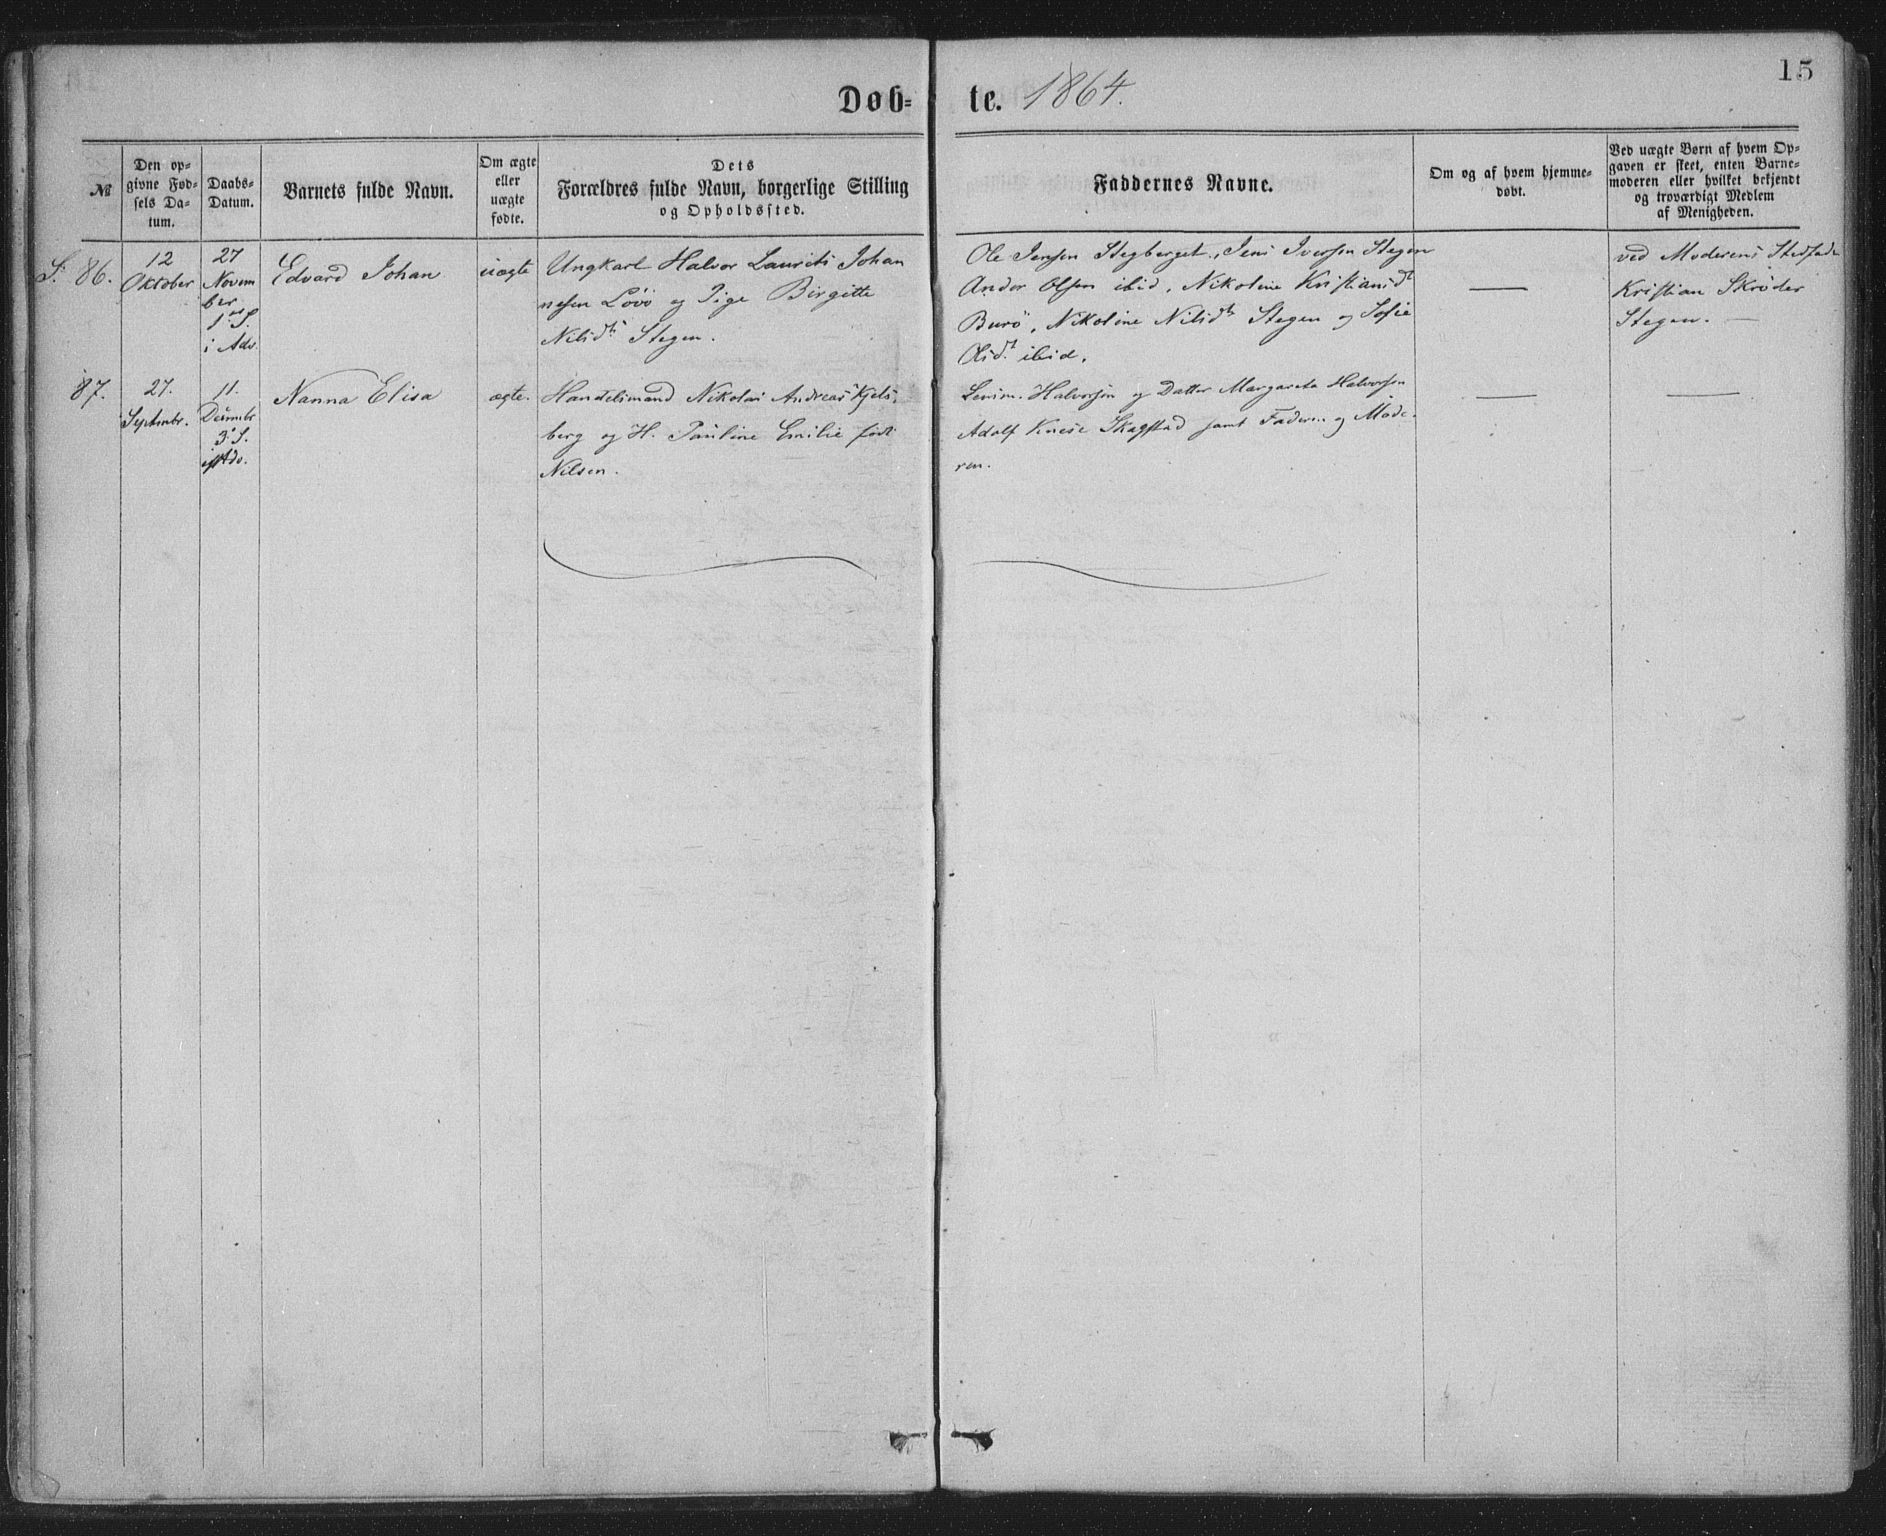 15
Døb- te. 1864.
№
Den op-
givne Fød-
sels Da-
tum.
Daabs-
Datum.
Barnets fulde Navn.
Om ægte
eller
uægte
fødte.
Dets
Forældres fulde Navn, borgerlige Stilling
og Opholdssted.
Faddernes Navne.
Om og af hvem hjemme-
døbt.
Ved uægte Børn af hvem Op-
gaven er skeet, enten Barne-
moderen eller hvilket bekjendt
og troværdigt Medlem
af Menigheden.
S. 86.
12
Oktober
27
Novem
ber
1ste S.
i Adv.
Edvard Johan
uægte
Ungkarl Halvor Laurits Johan
nesen Lövö og Pige Birgitte
Nilsdt Stegen.
Ole Jensen Stegberget, Jens Iversen Stegen
Andor Olsen ibid, Nikoline Kristiansdt
Burö, Nikoline Nilsdt Stegen og Sofie
Olsdt ibid.
ved Moderens Stedfader
Kristian Skröder
Stegen.
87.
27.
Septembr.
11.
Decembr
3die S.
i Adv.
Nanna Elisa
ægte.
Handelsmand Nikolai Andreas Kjels-
berg og H. Pauline Emilie född
Nilsen.
Lensm. Halvorsen og Datter Margareta Halvorsen
Adolf Skagstad samt Faderen og Mode-
ren.